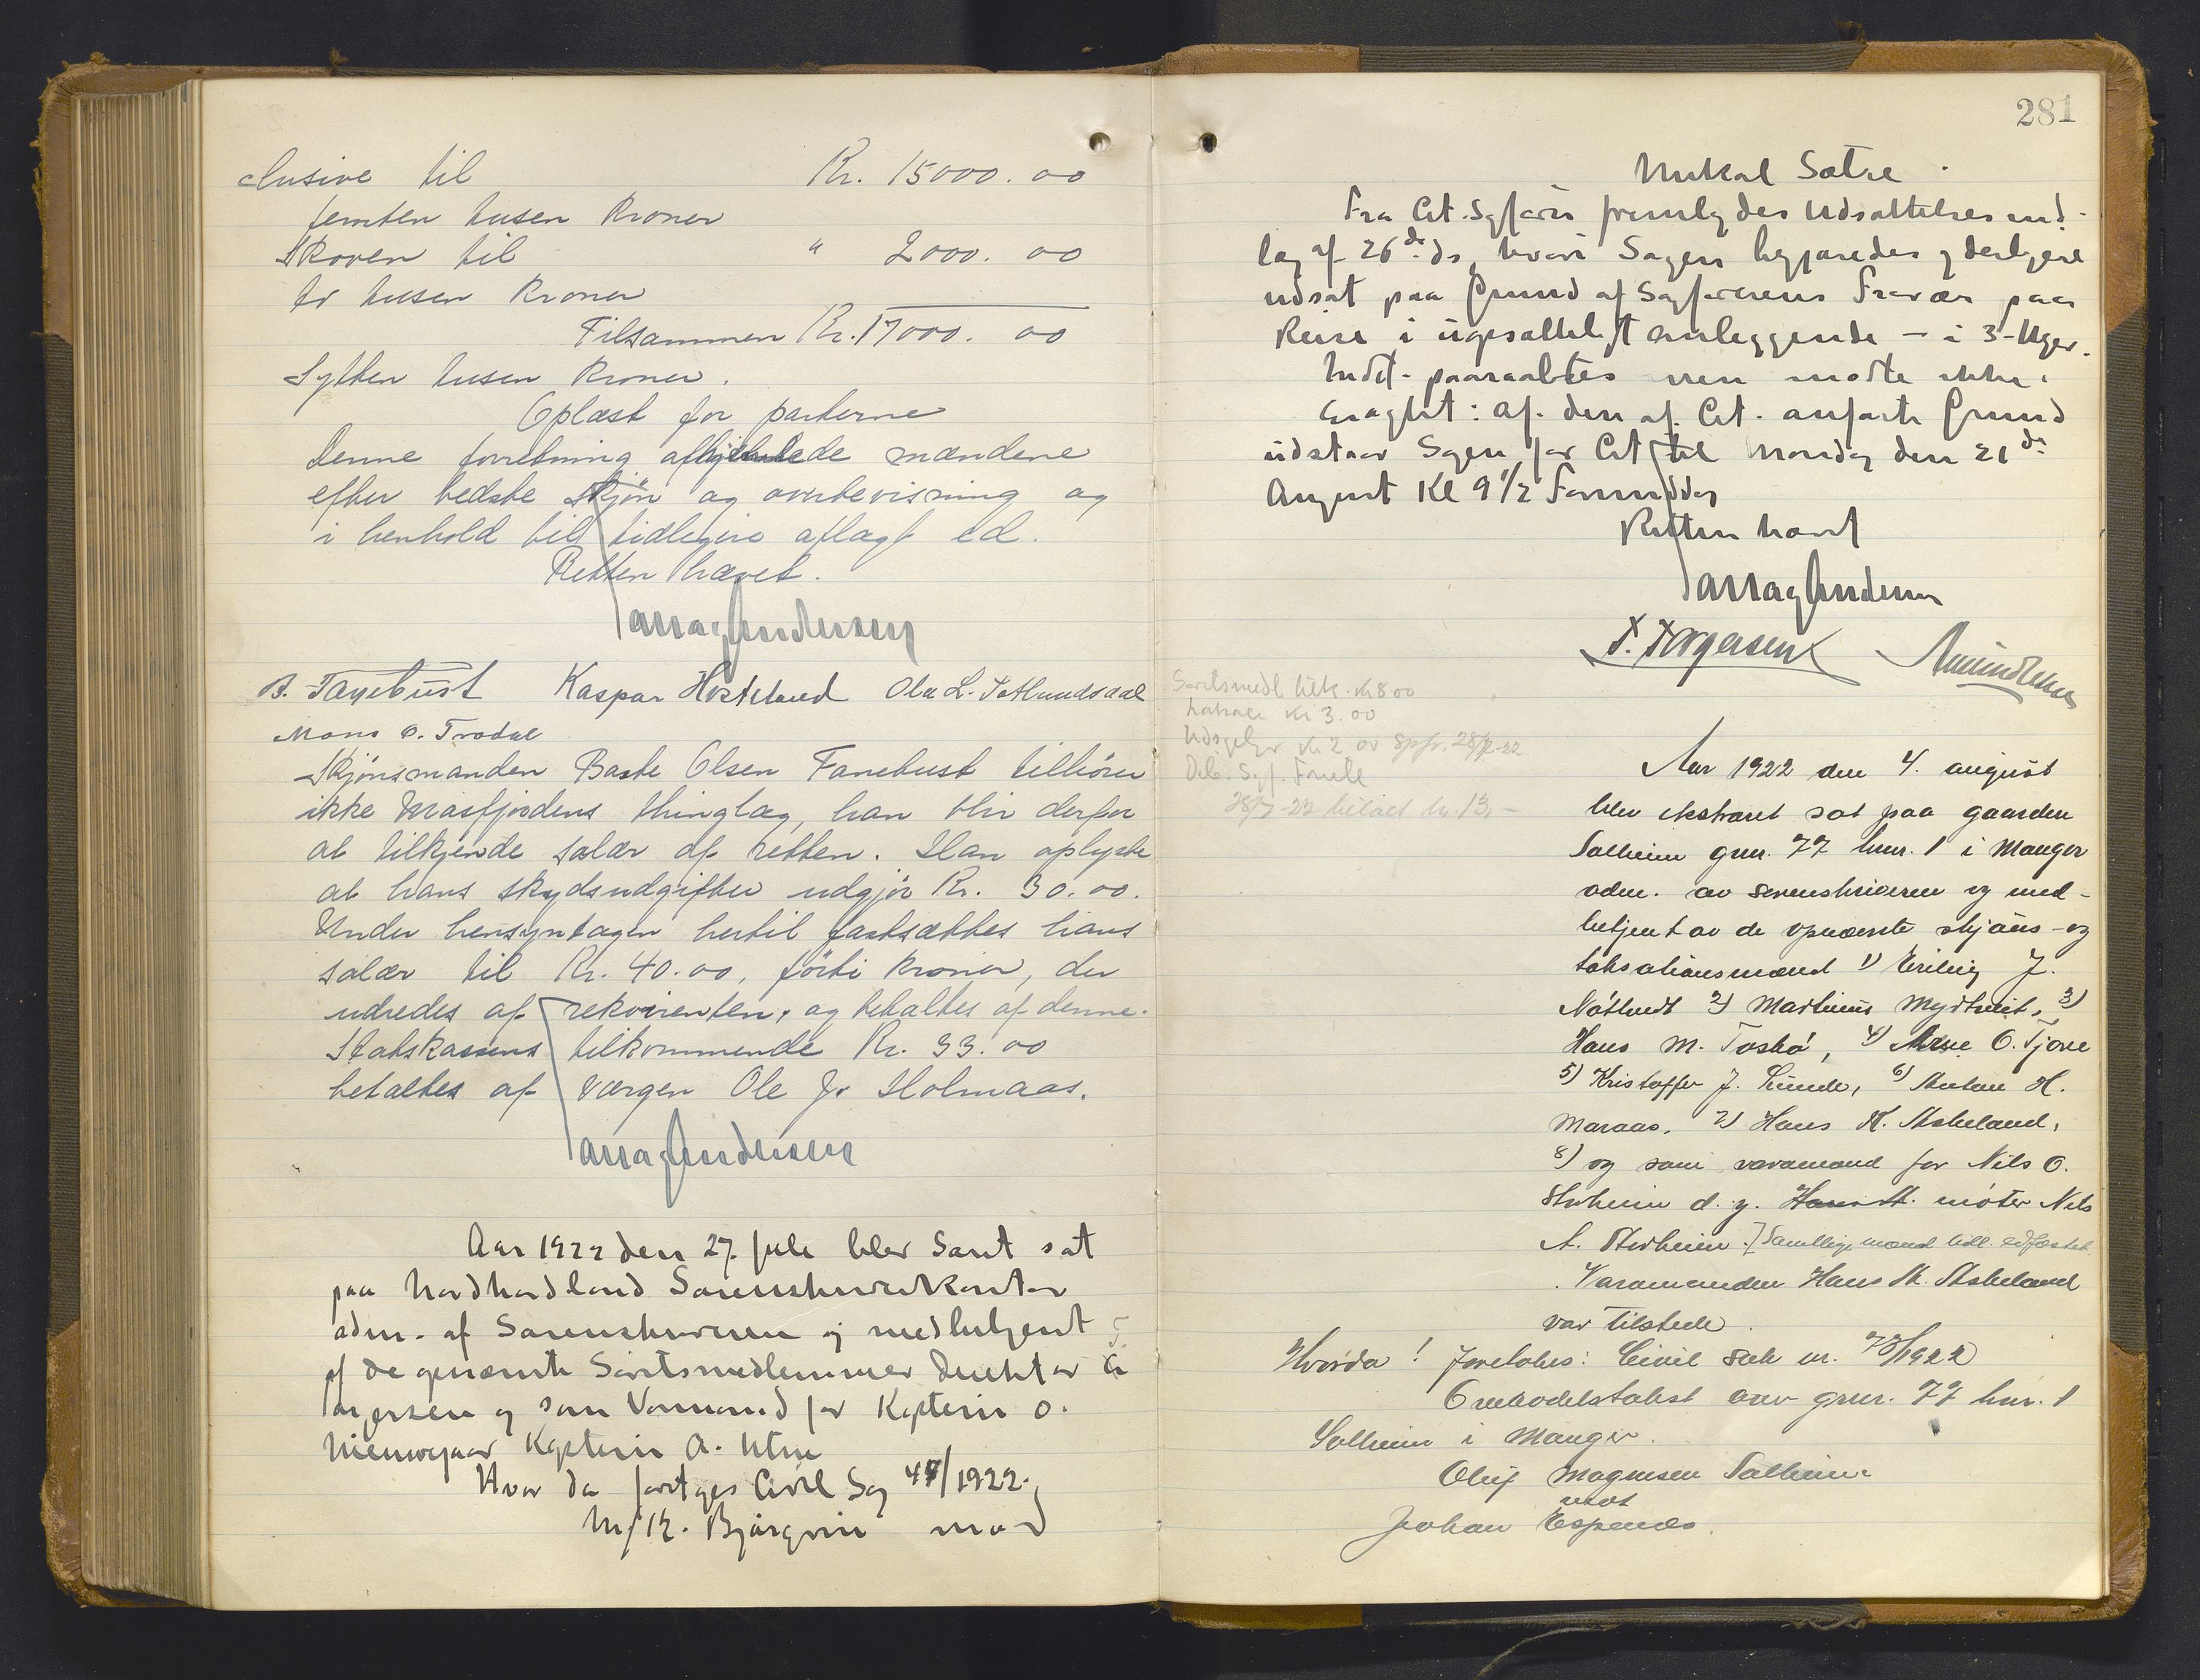 clusive til Kr. 15000.00
femten tusen Kroner
Skoven til " 2000.00
to tusen Kroner
Tilsammen Kr. 17000.00
Sytten tusen Kroner.
Oplæst for parterne
Denne forretning afhjemlede mændene
efter bedste skjön og overbevisning og
i henhold til tidligere aflagt ed.
Retten hævet.
Andersen
B. Tanebust Kaspar Hosteland Ola L.
Mons O. Trodal
Skjönsmanden Baste Olsen Fanebust tilhörer
ikke Masfjordens thinglag, han blir derfor
at tilkjende salær af retten. Han oplyste
at hans skydsudgifter udgjör Kr. 30.00.
Under hensyntagen hertil fastsættes hans
salær til Kr. 40.00, förti kroner, der
udredes af rekvirenten, og betaltes af denne.
Statskassens tilkommende Kr. 33.00
betaltes af Værgen Ole J. Holmaas.
Andersen
Aar 1922 den 27. juli blev Sørett sat
paa Nordhordland Sorenskriverkontor
adm. af Sorenskriveren og medbetjent
af de opnævnte Søretsmedlemmer Direktør
Torgersen og som Varmand for Kaptein O.
Kaptein A.
Hvor da foretoges Civil Sag 47/1922.
M/K. Bjørgvin mod
281
Mikal Sætre.
Fra Cit. Sagfører fremlagdes Udsættelsesind-
læg af 26de ds, hvori Sagen begjæredes yderligere
udsat paa Grund af Sagførerens Fravær paa
Reise i uopsætteligt anliggende – i 3 Uger.
Indst. paaraabtes men mødte ikke.
Eragtet: Af den af Cit. anførte Grund
udstaar Sagen for Cit til Mandag den 21de
August Kl 9 1/2 Formiddag
Retten hævet
Andersen
T. Torgersen
Søretsmedl. kr 8 00
kr 3.00
kr 2 28/7-22
28/7-22 betalt kr. 13,-
Aar 1922 den 4. august
blev ekstraret sat paa gaarden
Solheim gnr. 77 bnr. 1 i Manger
adm. av sorenskriveren og med-
betjent av de opnævnte skjöns- og
taksationsmænd 1) Erling J.
2) Martinus Myrtveit, 3)
Hans M. Toskö, 4) Arne O. Fjone
5) Kristoffer J. Lunde, 6) Anton H.
Maraas, 7) Hans K. Askeland,
8) og som varamand for Nils O.
Storheim d. y. Hans A. möter Nils
A. Storheim. Samtlige mænd tidl. edfæstet.
Varamanden Hans A. Askeland
var tilstede.
Hvorda! foretokes: Civil sak nr. 1922
Omkodelstakst over gnr. 77 bnr. 1
Solheim i Manger.
Oluf Magnusen Solheim
mot
Johan Espenes.